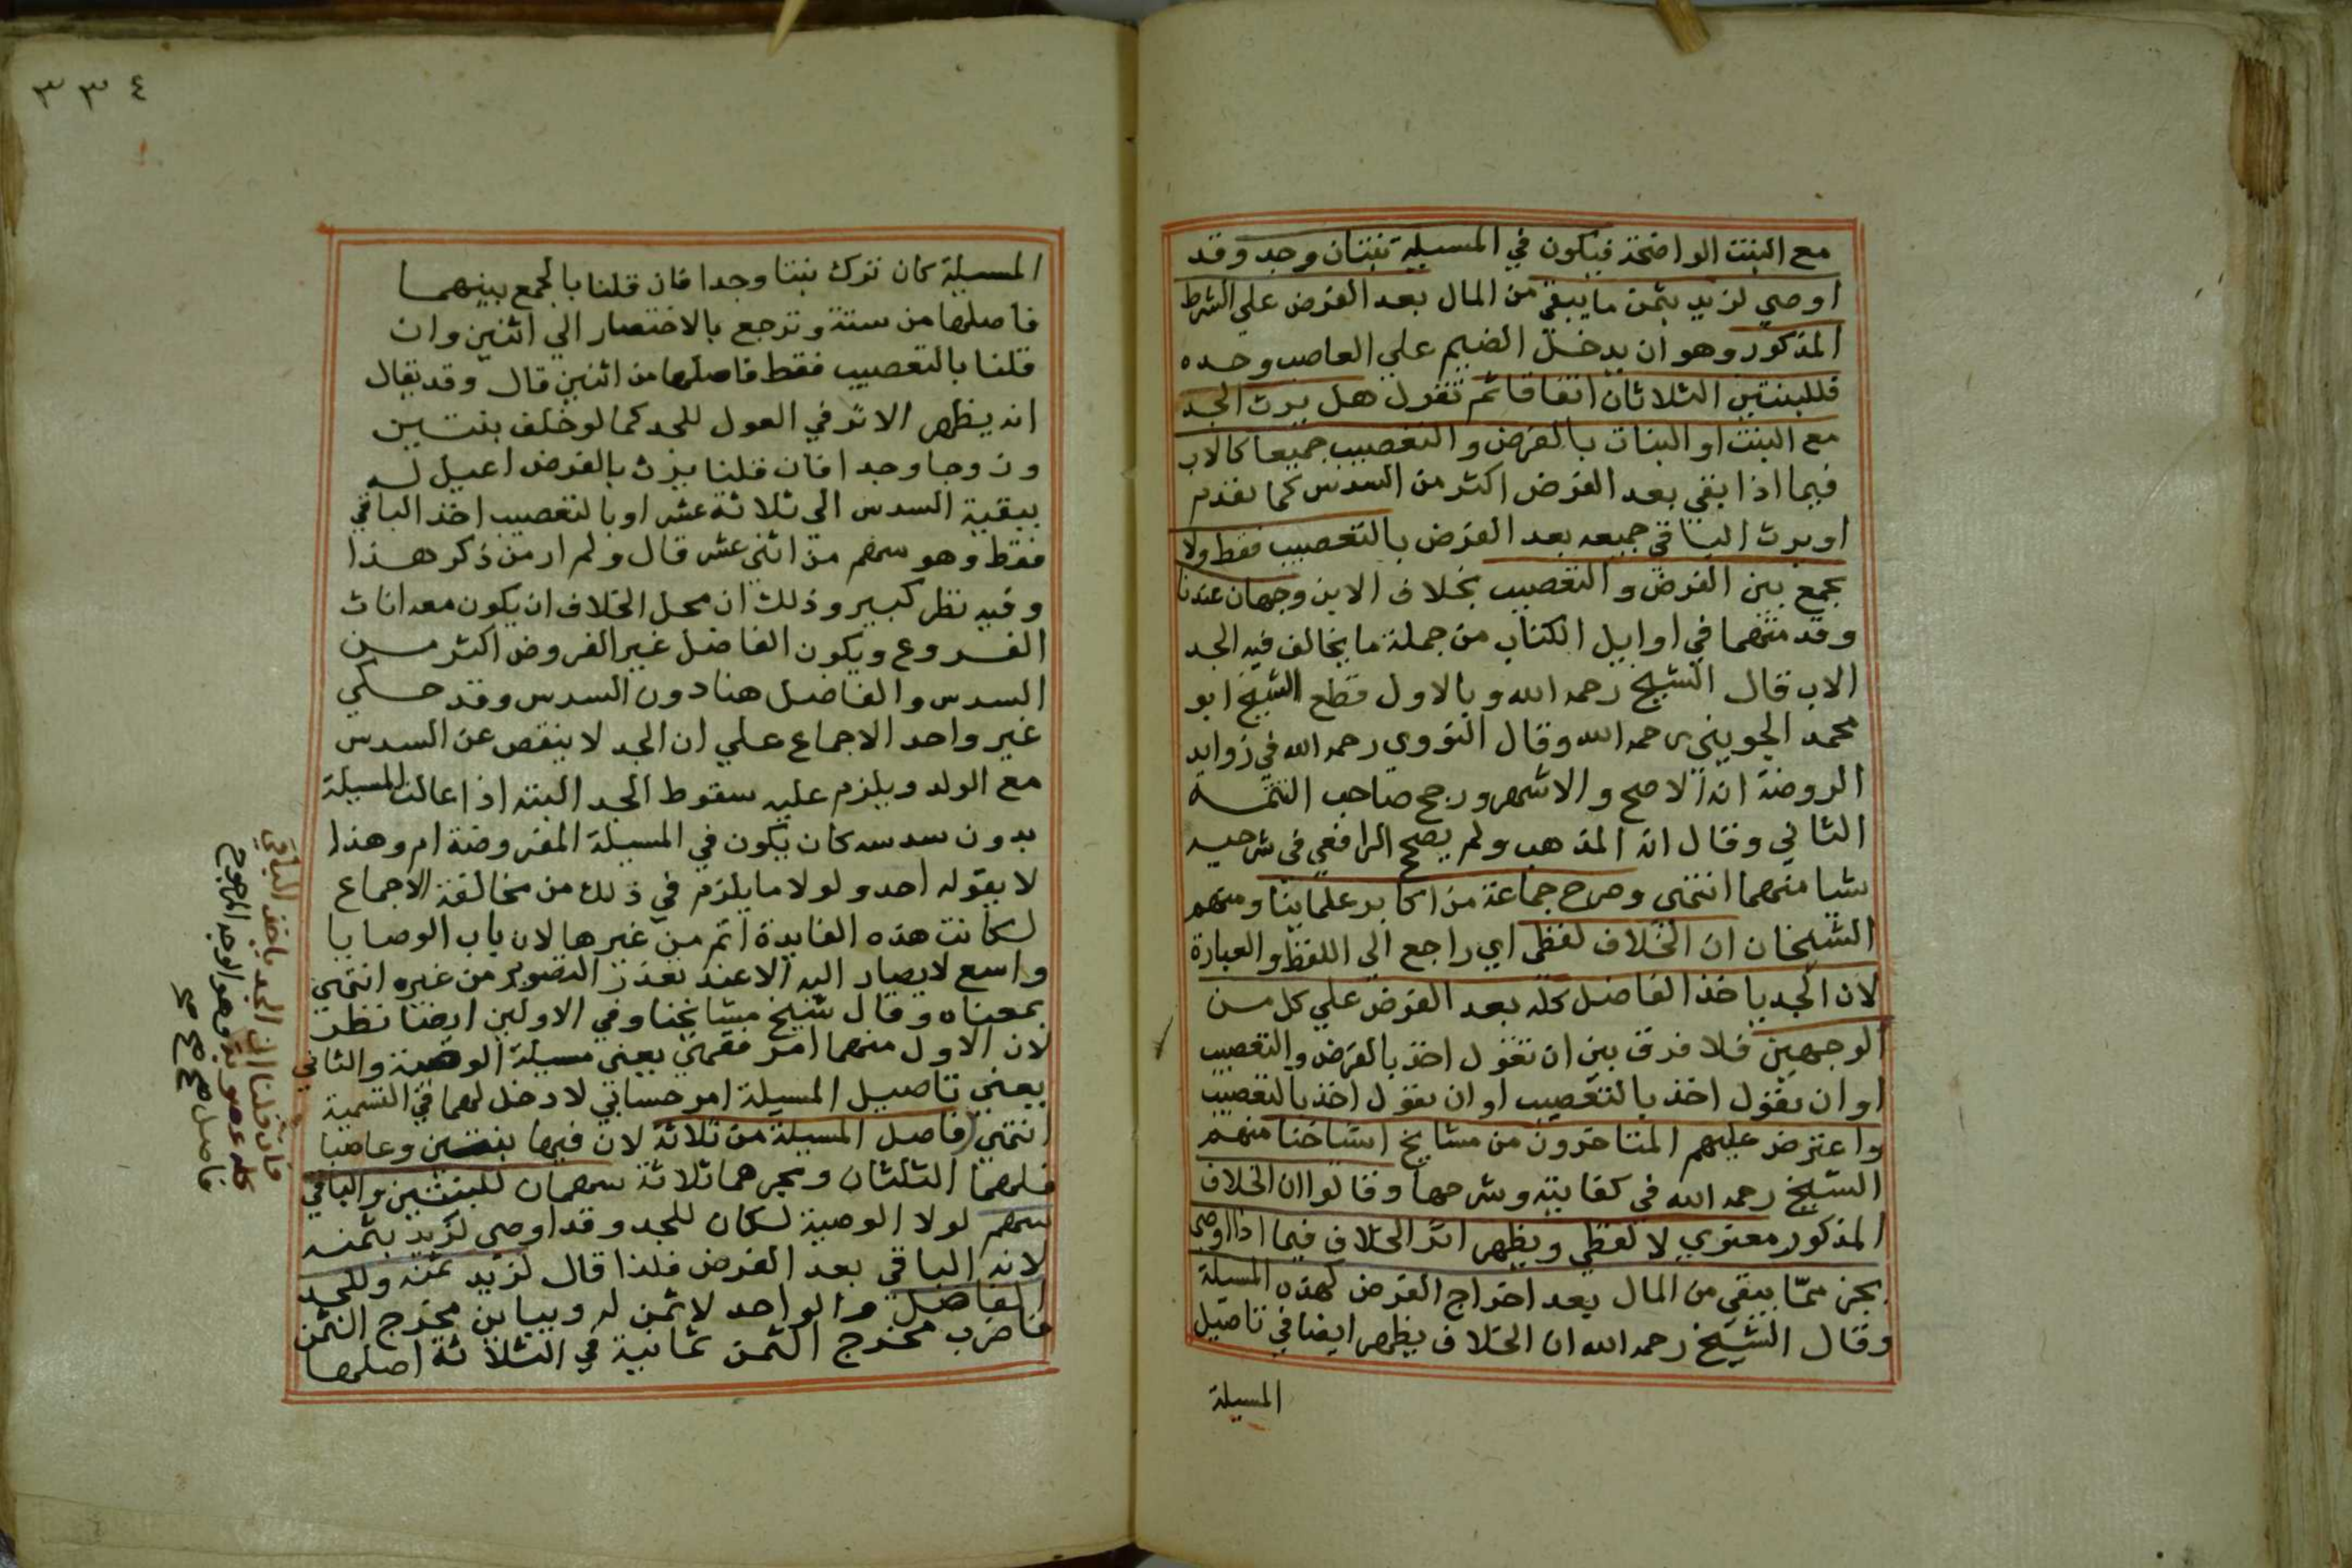 مع البنت الواضحة فيكون في المسيلة بنتان وجد وقد
اوصي لزيد بثمن ما يبقي من المال بعد الفرض علي الشرط
المذكور وهو ان يدخل الضيم علي العاصب وحده
فللبنتين الثلاثان اتفاقا ثم تقول هل يرث الجد
مع البنت او البنات بالفرض والتعصيب جميعا كالاب
فيما اذا بقي بعد الفرض اكثر من السدس كما تقدم
او يرث الباقي جميعه بعد الفرض بالتعصيب فقط ولا
يجمع بين الفرض والتعصيب بخلاف الابن وجهان عندنا
وقد متهما في اوايل الكتاب من جملة ما يخالف فيه الجد
الاب قال الشيخ رحمه الله وبالاول قطع الشيخ ابو
محمد الجويني رحمه الله وقال النووي رحمه الله في زوايد
الروضة انه الاصح والاشهر ورجح صاحب التتمة
الثاني وقال انه المذهب ولم يصحح الرافعي في شرحيه
شيا منهما انتهى وصرح جماعة من اكابر علماينا ومنهم
الشيخان ان الخلاف لفظي اي راجع الى اللفظ والعبارة
لان الجد ياخذ الفاضل كله بعد الفرض علي كل من
الوجهين فلا فرق بين ان تقول اخذ بالفرض والتعصيب
او ان تقول اخذ بالتعصيب او ان تقول اخذ بالتعصيب
واعترض عليهم المتاخرون من مشايخ اشياخنا منهم
الشيخ رحمه الله في كفايته وشرحها وقالوا ان الخلاف
المذكور معنوي لا لفظي ويظهر اثر الخلاف فيما اذا اوصى
بجزء مما يبقي من المال بعد اخراج الفرض لهذه المسيلة
وقال الشيخ رحمه الله ان الخلاف يظهر ايضا في تاصيل
المسيلة
٣٣٤
المسيلة كان ترك بنتا وجدا فان قلنا بالجمع بينهما
فاصلها من ستة وترجع بالاختصار الي اثنين وان
قلنا بالتعصيب فقط فاصلها من اثنين قال وقد يقال
انه يظهر الاثر في العول للجد كما لو خلف بنتين
وزوجا وجدا فان قلنا يرث بالفرض اعيل له
ببقية السدس الى ثلاثة عشر او بالتعصيب اخذ الباقي
فقط وهو سهم من اثني عشر قال ولم ار من ذكر هذا
وفيه نظر كبير وذلك ان محل الخلاف ان يكون معه اناث
الفروع ويكون الفاضل غير الفروض اكثر من
السدس والفاضل هنا دون السدس وقد حكي
غير واحد الاجماع علي ان الجد لا ينقص عن السدس
مع الولد ويلزم عليه سقوط الجد البتة اذا عالت المسيلة
بدون سدسه كان يكون في المسيلة المفروضة ام وهذا
لا يقوله احد ولولا ما يلزم في ذلك من مخالفة الاجماع
لكانت هذه الفايدة اتم من غيرها لان باب الوصايا
واسع لا يصار اليه الا عند تعذر التصوير من غيره انتهى
بمعناه وقال شيخ مشايخنا وفي الاولين ايضا نظر
لان الاول منهما امر فقهي يعني مسيلة الوصية والثاني
يعني تاصيل المسيلة امر حسابي لا دخل لهما في التسمية
انتهى فاصل المسيلة من ثلاثة لان فيها بنتين وعاصبا
فلهما الثلثان ومخرجهما ثلاثة سهمان للبنتين والباقي
سهم لولا الوصية لكان للجد وقد اوصى لزيد بثمنه
لانه الباقي بعد الفرض فلذا قال لزيد ثمنه وللجد
الفاضل والواحد لا ثمن له ويباين مخرج الثمن
فاضرب مخرج الثمن ثمانية في الثلاثة اصلها
فان قلنا ان الجد ياخذ الباقي
وهو الوجه المرجوح
فاصل صح صح